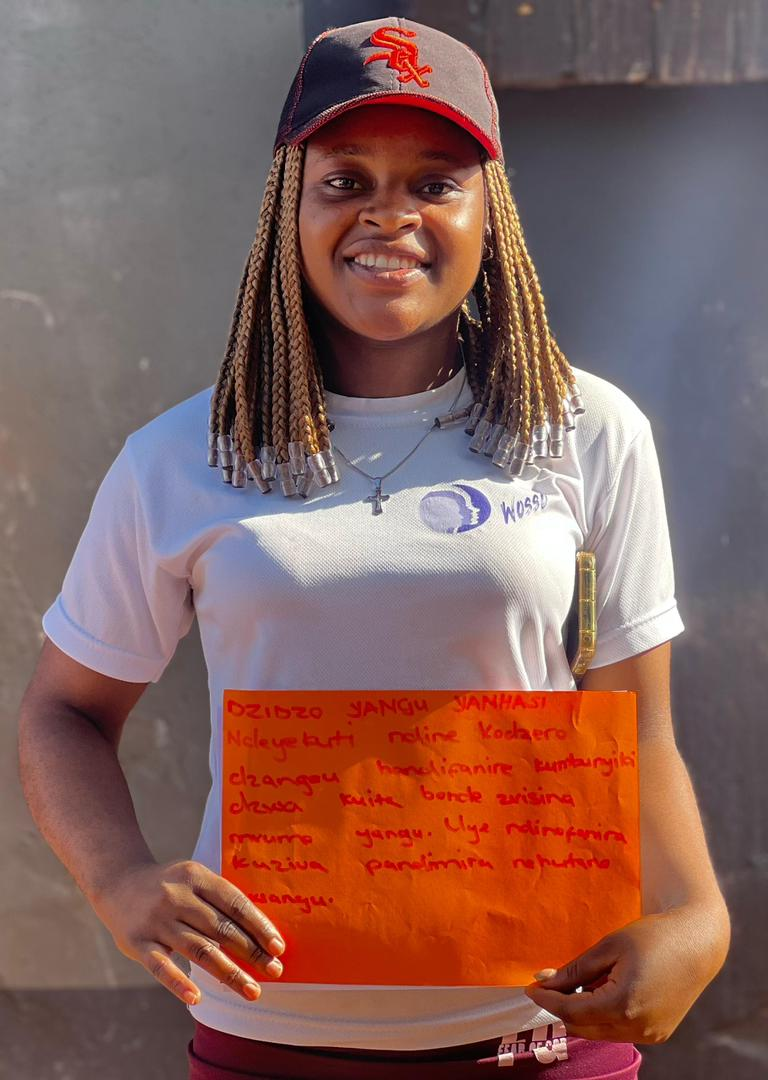 Sox
WOSSO
DZIDZO YANGU YANHASI
Ndeyekuti ndine Kodzero
dzangu handifanire kumbunyiki
dzwa kuita bonde zvisina
mvumo yangu. Uye ndinofanira
kuziva pandimira nehutano
wangu.
FEAR OF GOD